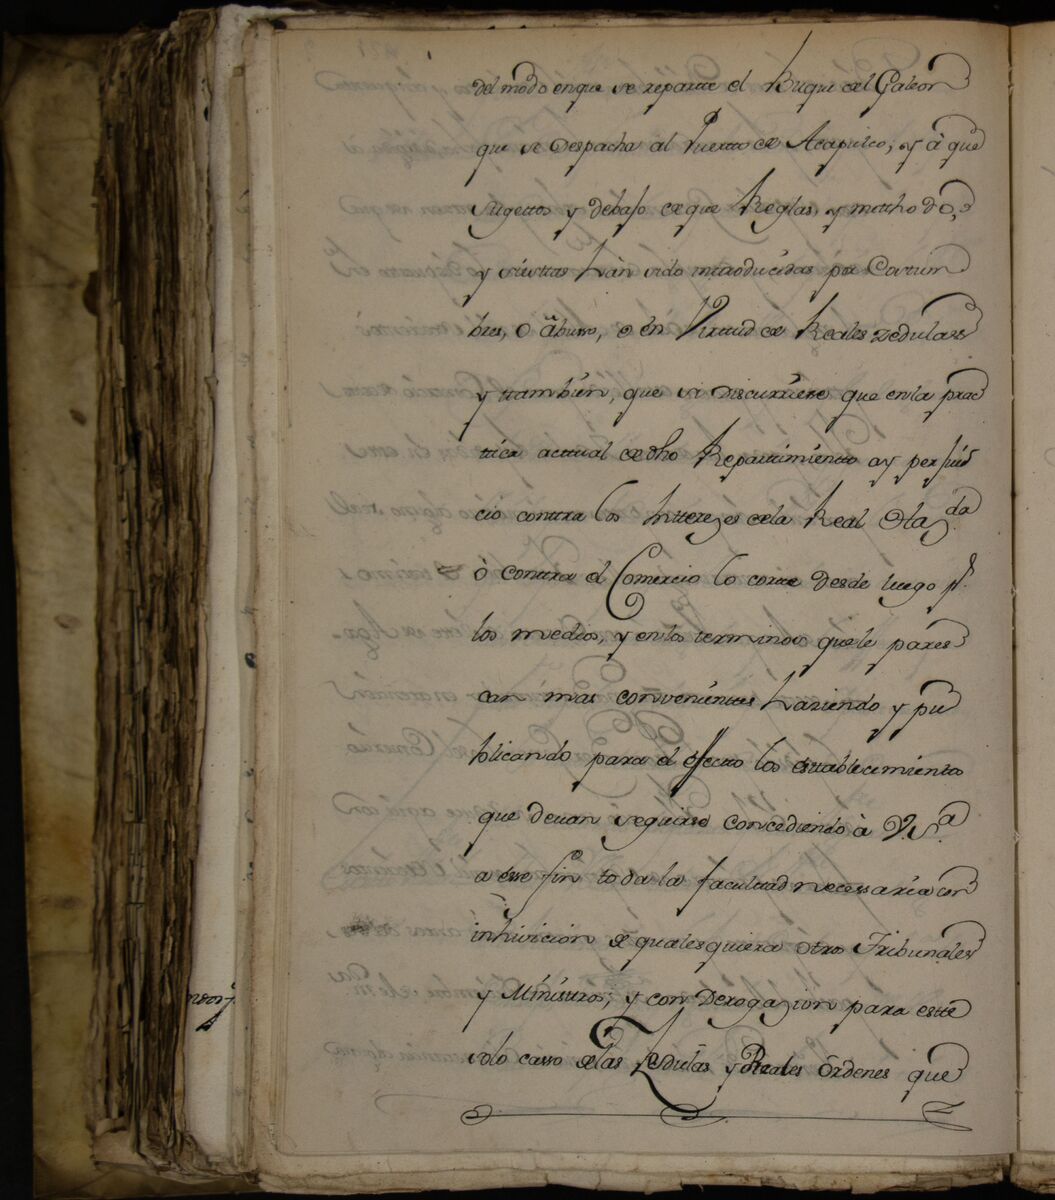 del modo en que se reparte el Buque del Galeon
que se Despacha al Puerto de Acapulco, y à que
Sugettos y debajo de que Reglas, y methodo,
y si esttas hàn sido introducidas por Costum
bres, o âbusso, o en Virtud de Reales zedulas
y ttambien, que si Discurriere que en la prac
tica acttual de dho Repartimiento ay perjui
cio contra los Intterezes de la Real Haz.da
ò contra el Comercio lo corte desde luego p.r
los medios, y en los terminos que le pares
can mas convenienttes haziendo y pu
blicando para el efecto los establecimientos
que devan seguirse concediendo à V.S.a
a este fin toda la facultad necessaria con
inhivicion de qualesquiera otros Tribunales
y Ministros; y con Derogazion para este
solo casso de las Zedulas y Reales Ordenes que